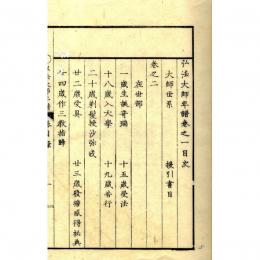 弘法大師年譜卷之一目次
大師世系
援引書目
卷之二
在世部
一歲生誕奇瑞
十五歲受法
十八歲入大學
十九歲苦行
二十歲剃髮授沙弥戒
廿二歲受具
廿三歲祈禱感得秘典
廿四歲作三教指歸